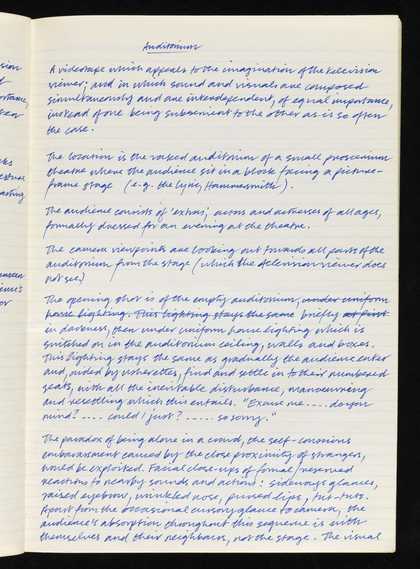 sion
Auditorium
A videotape which appeals to the imagination of the television
viewer; and in which sound and visuals are composed
simultaneously and are interdependent, of equal importance,
instead of one being subservient to the other as is so often
the case.
The location is the raked auditorium of a small proscenium
theatre where the audience sit in a block facing a picture-
frame stage (e.g. the Lyric, Hammersmith).
The audience consists of 'extras'; actors and actresses of all ages,
formally dressed for an evening at the theatre.
The camera viewpoints are looking out towards all parts of the
auditorium from the stage (which the television viewer does
not see.)
The opening shot is of the empty auditorium, under uniform
house lighting. This lighting stays the same briefly at first
in darkness, then under uniform house lighting which is
switched on in the auditorium ceiling, walls and boxes.
This lighting stays the same as gradually the audience enter
and, aided by usherettes, find and settle in to their numbered
seats, with all the inevitable disturbance, manoeuvring
and resettling which this entails. "Excuse me ..... do you
mind? .... could I just? ..... so sorry."
The paradox of being alone in a crowd, the self-conscious
embarrassment caused by the close proximity of strangers,
would be exploited. Facial close-ups of formal/reserved
reactions to nearby sounds and actions: sideways glances,
raised eyebrow, wrinkled nose, pursed lips, tut-tuts.
Apart from the occasional cursory glance to camera, the
audience's absorption throughout this sequence is with
themselves and their neighbours, not the stage. The visual